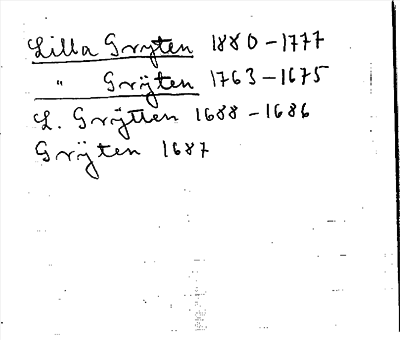 Lilla Gryten 1880-1777
" Grÿten 1763-1675
L. Grÿtten 1688-1686
Grÿten 1687